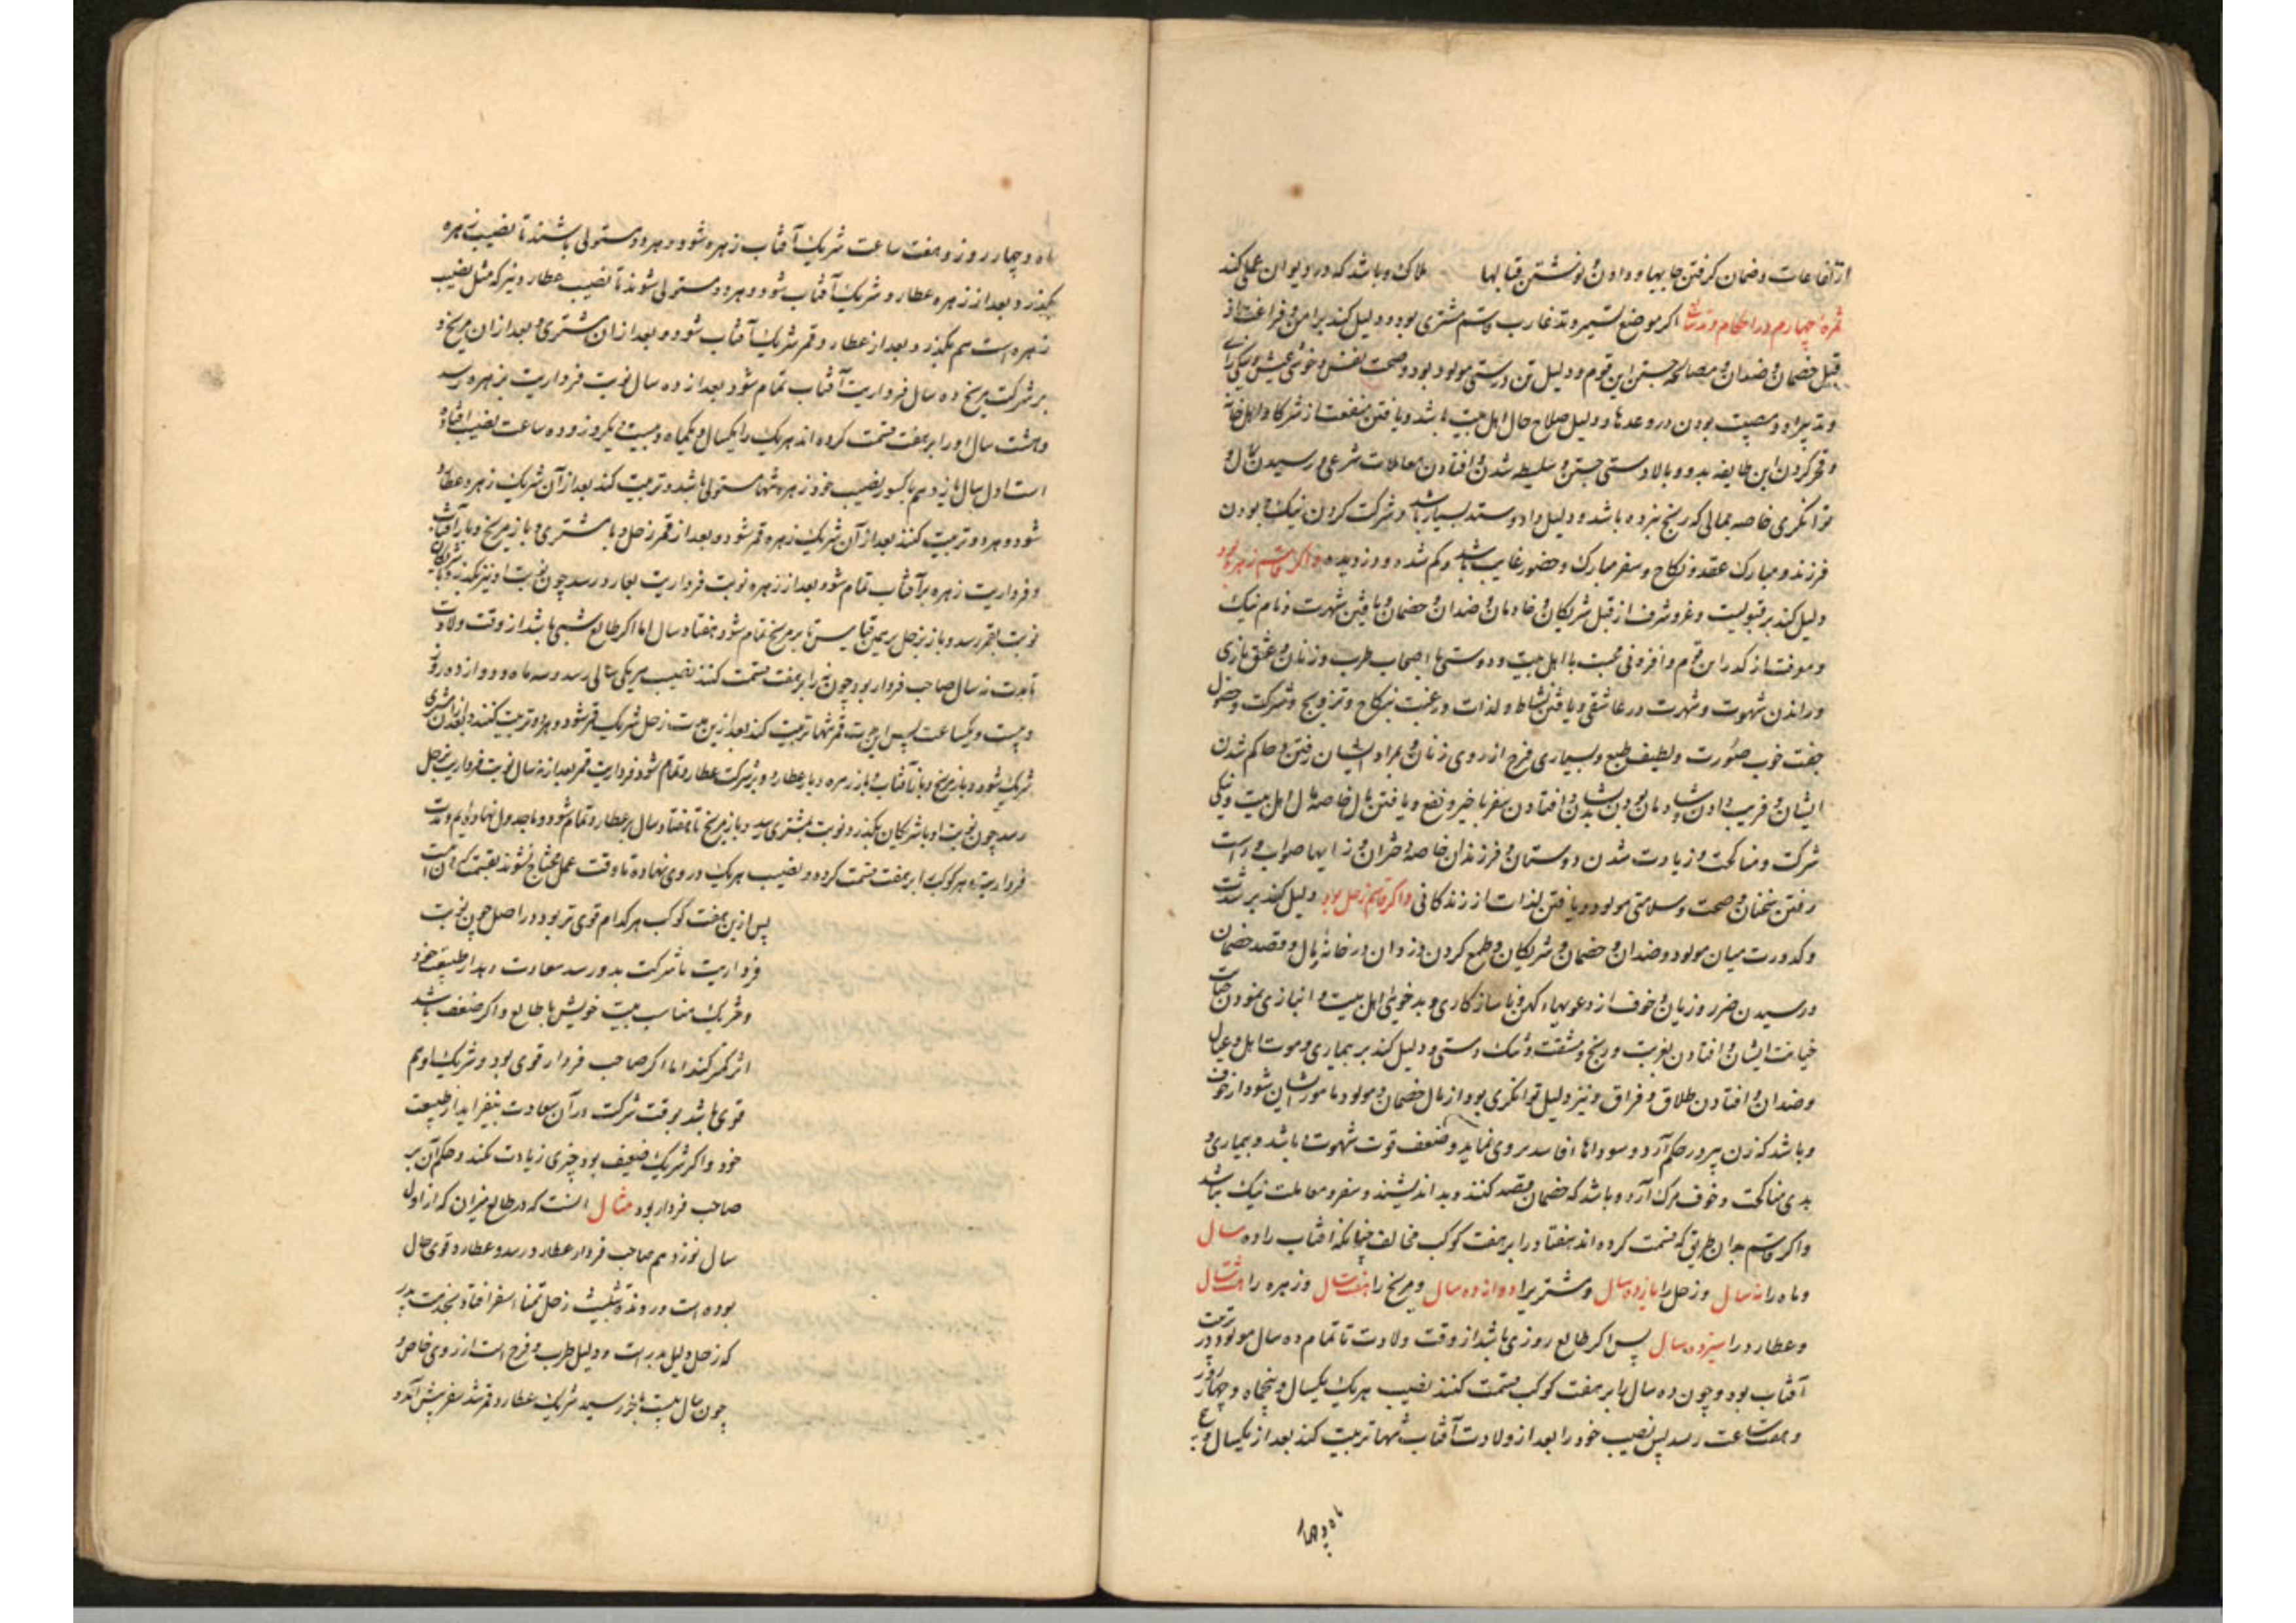 از آفاعات و ضمان کرفتن جابیها و دادن و نوشتن قبالها ملاک و باشد که در دیوان عمل کند
ثمره چهارم در احکام وتد سابع اکر موضع تسییر وتد غارب قاسم مشتری بود و دلیل کند بر امن و فراغت از
قبل خصمان و ضدان و مصالحه جستن این قوم و دلیل تن درستی مولود بود و صحت نفس و خوشی عیش و نیکی رای
و تدبیر او و مصیب بودن در وعدها و دلیل صلاح حال اهل بیت باشد و یافتن منفعت از شرکا و اهل خانه
و قهر کردن این طایفه بدو و بالادستی جستن و سلیطه شدن و افتادن معاملات شرعی و رسیدن مال و
توانکری خاصه بمالی که رنج نبرده باشد و دلیل داد و ستد بسیار باشد و شرکت کردن نیک و بودن
فرزند و مبارک عقد و نکاح و سفر مبارک و حضور غایب باشد و کم شده و دزدیده و اکر قاسم زهره بود
دلیل کند بر قبولیت و عز و شرف از قبل شریکان و خادمان و ضدان و خصمان و یافتن شهرت و نام نیک
و معرفت از کدر این قوم و افزونی محبت با اهل بیت و دوستی با اصحاب طرب و زنان و عشق بازی
و راندن شهوت و شهرت در عاشقی و یافتن نشاط و لذات و رغبت بنکاح و تزویج و شرکت و حصول
جفت خوب صورت و لطیف طبع و بسیاری فرح از روی زنان و بمراد ایشان رفتن و حاکم شدن
ایشان و فریب دادن و شادمان بودن بدیشان و افتادن سفر با خیر و نفع و یافتن مال خاصه مال اهل بیت و نیکی
شرکت و مناکحت و زیادت شدن دوستان و فرزندان خاصه دختران و زایها صواب و راست
رفتن سخنان و صحت و سلامتی مولود و یافتن لذات از زندکانی و اکر قاسم زحل بود دلیل کند بر شدت
و کدورت میان مولود و ضدان و خصمان و شریکان و طمع کردن دزدان در خانه یا مال و قصد خصمان
و رسیدن ضرر و زیان و خوف از دعویهاء کهن و ناسازکاری و بدخویی اهل بیت و انبازی نمودن جنایت
خیانت ایشان و افتادن بغربت و رنج و مشقت و تنک دستی و دلیل کند بر بیماری و موت اهل و عیال
و ضدان و افتادن طلاق و فراق و نیز دلیل توانکری بود از مال خصمان و مولود مامور ایشان شود از خوف
و باشد که زن پیر در حکم آرد و سوداها فاسد بر وی نماید و ضعف قوت شهوت باشد و بیماری و
بدی مناکحت و خوف مرک آرد و باشد که خصمان قصد کنند و بد اندیشند و سفر و معاملت نیک نباشد
و اکر قاسم بدان طریق که قسمت کرده اند هفتاد را بر هفت کوکب مخالف چنانکه افتاب را ده سال
و ماه را نه سال و زحل را یازده سال و مشتری را دوازده سال و مریخ را هفت سال و زهره را هشت سال
و عطارد را سیزده سال پس اکر طالع روزی باشد از وقت ولادت تا تمام ده سال مولود در تربیت
آفتاب بود و چون ده سال را بر هفت کوکب قسمت کنند نصیب هر یک یکسال و پنجماه و چهار روز
و هفت ساعت رسد پس نصیب خود را بعد از ولادت آفتاب تنها تربیت کند بعد از یکسال و پنج
ماه و چهار
ماه و چهار روز و هفت ساعت شریک آفتاب زهره شود و هر دو مستولی باشند تا نصیب زهره
بکذرد و بعد از زهره عطارد شریک آفتاب شود و هر دو مستولی شوند تا نصیب عطارد نیز که مثل نصیب
زهره است هم بکذرد و بعد از عطارد قمر شریک آفتاب شود و بعد از ان مشتری و بعد از ان مریخ و
بر شرکت مریخ ده سال فرداریت آفتاب تمام شود بعد از ده سال نوبت فرداریت بزهره رسد
و هشت سال او را بر هفت قسمت کرده اند هر یک را یکسال و یکماه و بیست و یکروز و ده ساعت نصیب افتاده
است اول سال یازدهم با کسور نصیب خود زهره تنها مستولی باشد و تربیت کند بعد از آن شریک زهره عطارد
شود و هر دو تربیت کنند بعد از آن شریک زهره قمر شود و بعد از قمر زحل و با مشتری و باز مریخ و باز آفتاب
و فرداریت زهره بر آفتاب تمام شود بعد از زهره نوبت فرداریت بعطارد رسد چون نوبت او نیز بکذرد با شریکان
نوبت بقمر رسد و باز بزحل بر همین قیاس تا بر مریخ تمام شود هفتاد سال اما اکر طالع شبی باشد از وقت ولادت
تا مدت نه سال صاحب فردار بود چون نه را بر هفت قسمت کنند نصیب هر یکی سالی رسد و سه ماه و دوازده روز
و بیست و یکساعت پس این مدت قمر تنها تربیت کند بعد از این مدت زحل شریک قمر شود و هر دو تربیت کنند بعد از آن مشتری
شریک شود و باز مریخ و باز آفتاب و باز زهره و باز عطارد و بر شرکت عطارد تمام شود فرداریت قمر بعد از نه سال نوبت فرداریت بزحل
رسد چون نوبت او با شریکان بکذرد نوبت بمشتری رسد و باز مریخ تا هفتاد سال بر عطارد تمام شود و ما جدول نهاده ایم و مدت
فرداریت هر کوکب را بر هفت قسمت کرده و نصیب هر یک در وی نهاده تا وقت عمل محتاج نشوند بقسمت کردن آن
پس از این هفت کوکب هر کدام قوی تر بود در اصل چون نوبت
فرداریت یا شرکت بدو رسد سعادت دهد از طبیعت خود
و شریک مناسب بیت خویش با طالع و اکر ضعیف باشد
اثر کمتر کند اما اکر صاحب فردار قوی بود و شریک او هم
قوی باشد بوقت شرکت در آن سعادت بیفزاید از طبیعت
خود و اکر شریک ضعیف بود چیزی زیادت نکند و حکم آن بر
صاحب فردار بود مثال انست که در طالع میزان که از اول
سال نوزدهم صاحب فردار عطارد رسد و عطارد قوی حال
بوده است و در وتد و تثلیث زحل تمناء سفر افتاد بخدمت پدر
که زحل دلیل پدر است و دلیل طرب و فرح است از روی خاص و
چون سال بیست بآخر رسید شریک عطارد قمر شد سفر پیش آمد و